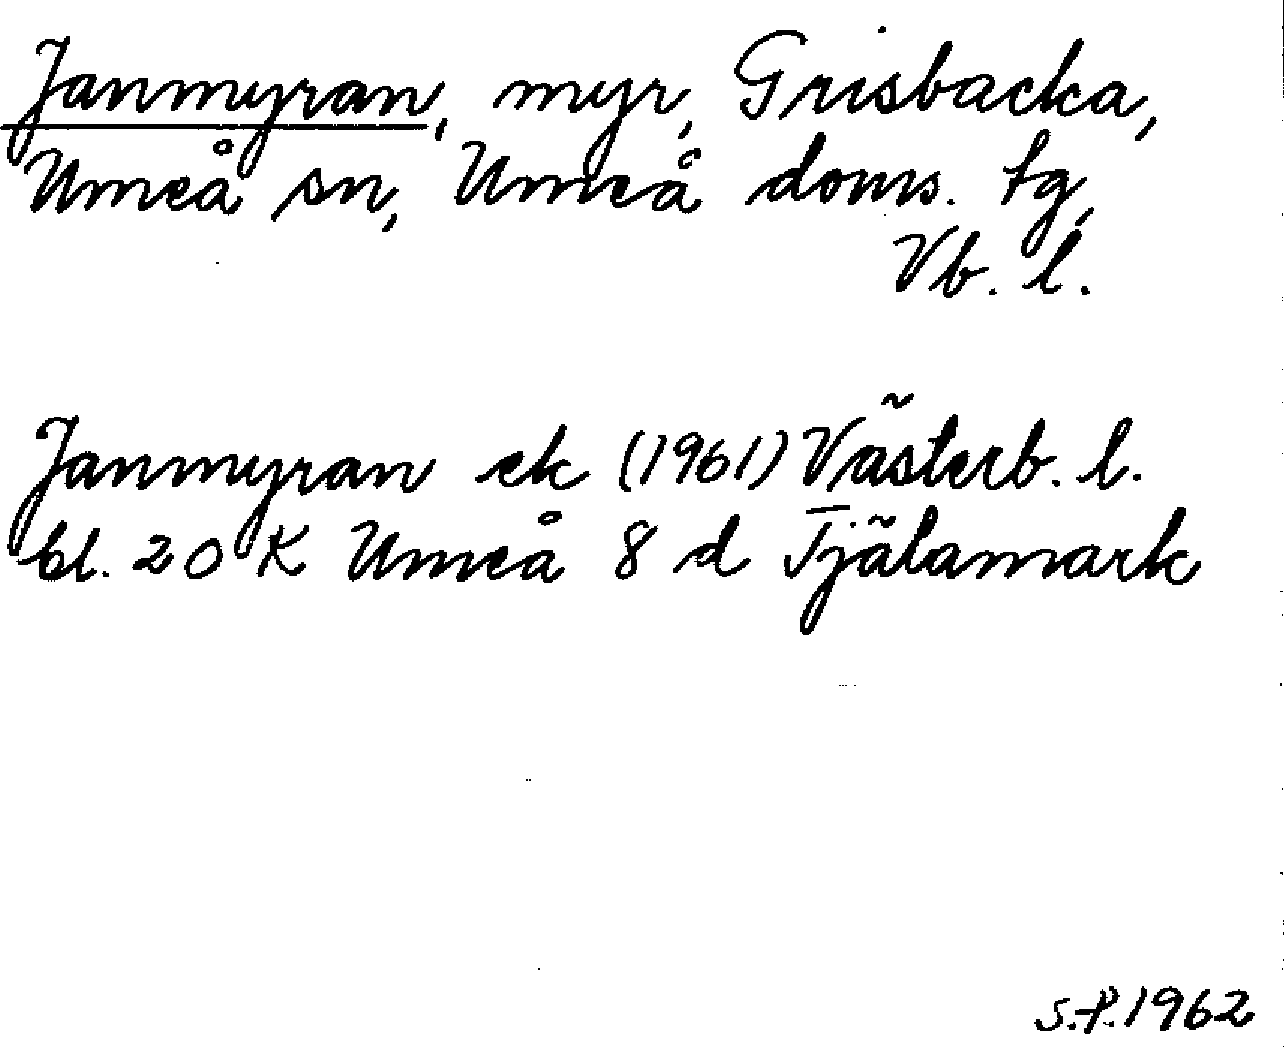 Janmyran, myr, Grisbacka,
Umeå sn, Umeå doms. tg,
Vb. l.
Janmyran ek (1961) Västerb. l.
bl. 20 K Umeå 8 d Tjälamark
S.P. 1962